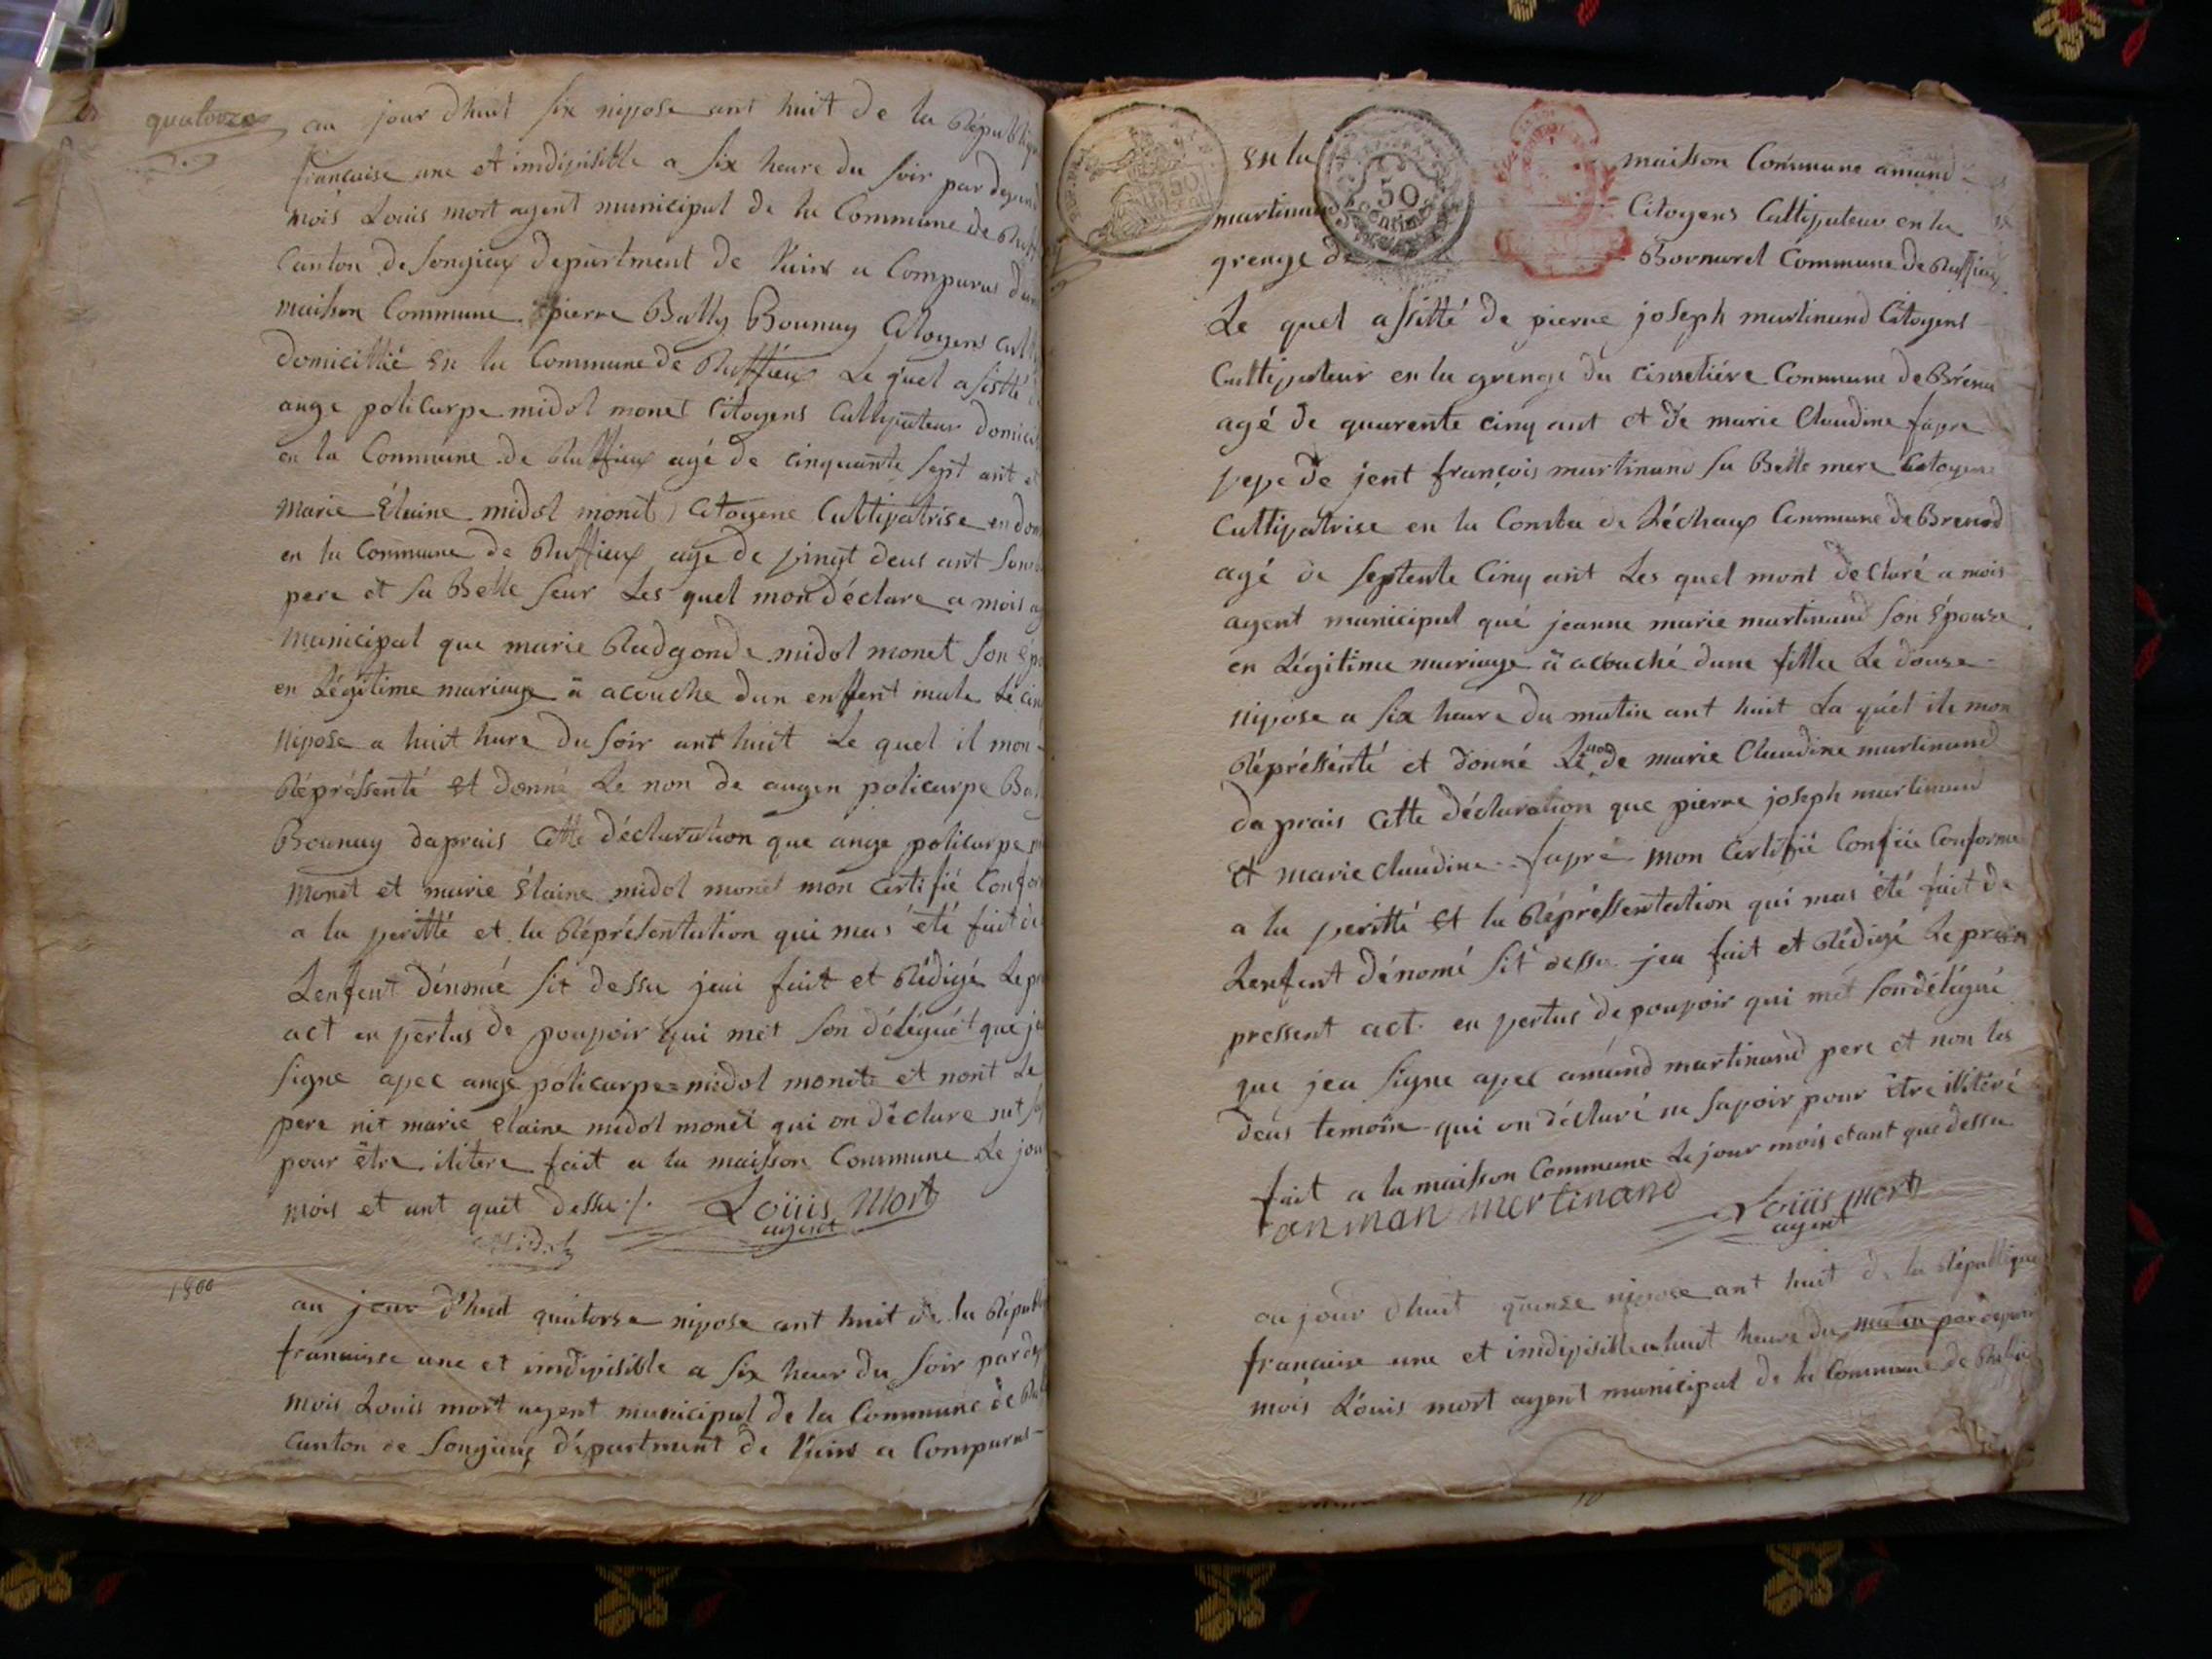 quatorze
au jour dhuit six nivose ant huit de la Républiq
francaise une et imdivisible a six heure du soir par devent
mois Louis mort agent municipal de la Commune de Ruff
Canton de songieux department de lains a Comparus dans
maison Commune pierre Bally Bounay Citoyens Cult
domicillié en la Commune de Ruffieux Le quel asistté d
ange policarpe midol monet Citoyens Cultivateur domicil
en la Commune de Ruffieux agé de cinquante sept ant et
marie élaine midol monet Citoyene Cultivatrise en dom
en la Commune de Ruffieux age de vingt deus ant son b
pere et sa Belle seur Les quel mon déclare a mois ag
municipal que marie Radgonde midol monet son épo
en Légitime mariage ä acouche dun enffent male Le cin
nivose a huit hure du soir ant huit Le quel il mon
Répréssenté et donné Le non de augen policarpe Ba
Bounay daprais Cette déclaration que ange policarpe m
monet et marie élaine midol monet mon Certifié Confor
a la veritté et la Réprésentation qui mas été fait de
Lenfent dénomé sit dessu jeai fait et Rédigé Le pr
act en vertus de pouvoir qui met son délégué que je
signe avec ange policarpe midol monet et nont Le
pere nit marie elaine midol monet qui on déclare nut sa
pour ëtre ilitere fait a la maisson Commune Le jou
mois et ant quit dessu ./. Loüis Mort
agent
Midol
1800
au jour d'huit quatorse nivose ant huit de la Républi
francaisse une et imdivisible a six heur du soir par de
mois Louis mort agent municipal de la Commune de Ru
Canton de songieux département de lains a Comparus
en la maisson Commune amand
martinand Citoyens Cultivateur en la
grenge de Bovnarel Commune de Ruffieux
Le quel assitté de pierre joseph martinand Citoyens
Cultivateur en la grenge du cimetiére Commune de Bréna
agé de quarente cinq ant et de marie Claudine favre
veve de jent françois martinand sa Belle mere Citoyene
Cultivatrise en la Comba de Léchaux Commune de Brenod
agé de septente Cinq ant Les quel mont declaré a mois
agent municipal qué jeanne marie martinand son épouse
en Légitime mariage ä acouché dune fillee Le douse
nivose a six heure du matin ant huit La quél ile mon
Répréssénté et donné Le non de marie Claudine martinand
daprais Cette déclaration que pierre joseph martinand
et marie Claudine favre mon Certifié Confiée Conforme
a la veritté et la Répréssentation qui mas été fait de
Lenfent dénomé sit dessu jea fait et Rédigé Le presen
pressent act en vertus de pouvoir qui mét son délégué
que jea signe avec amand martinand pere et non les
deus temoin qui on déclaré ne savoir pour ëtre illitéré
fait a la maisson Commune Le jour mois et ant que dessu
anman mertinand Loüis mort
agent
au jour dhuit quinze nivose ant huit de la République
francaise une et imdivisible a huit heure du matin par devent
mois Louis mort agent municipal de la Commune de Ruffieu
50